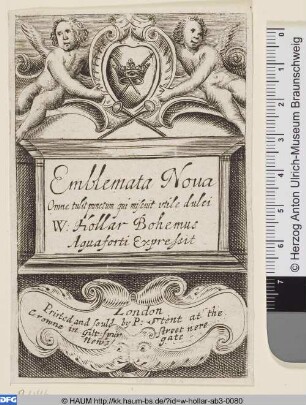 Emblemata Nova
Omne tulit punctum qui miscuit utile dulci
W: Hollar Bohemus
Aquaforti Expressit
London
Printed and sould by P: Stent at the
Crowne in Gilt-spur Street nere
New gate
0 1 2 3 4 5 6 7
© Herzog Anton Ulrich-Museum Braunschweig
DFG
© HAUM http://kk.haum-bs.de/?id=w-hollar-ab3-0080